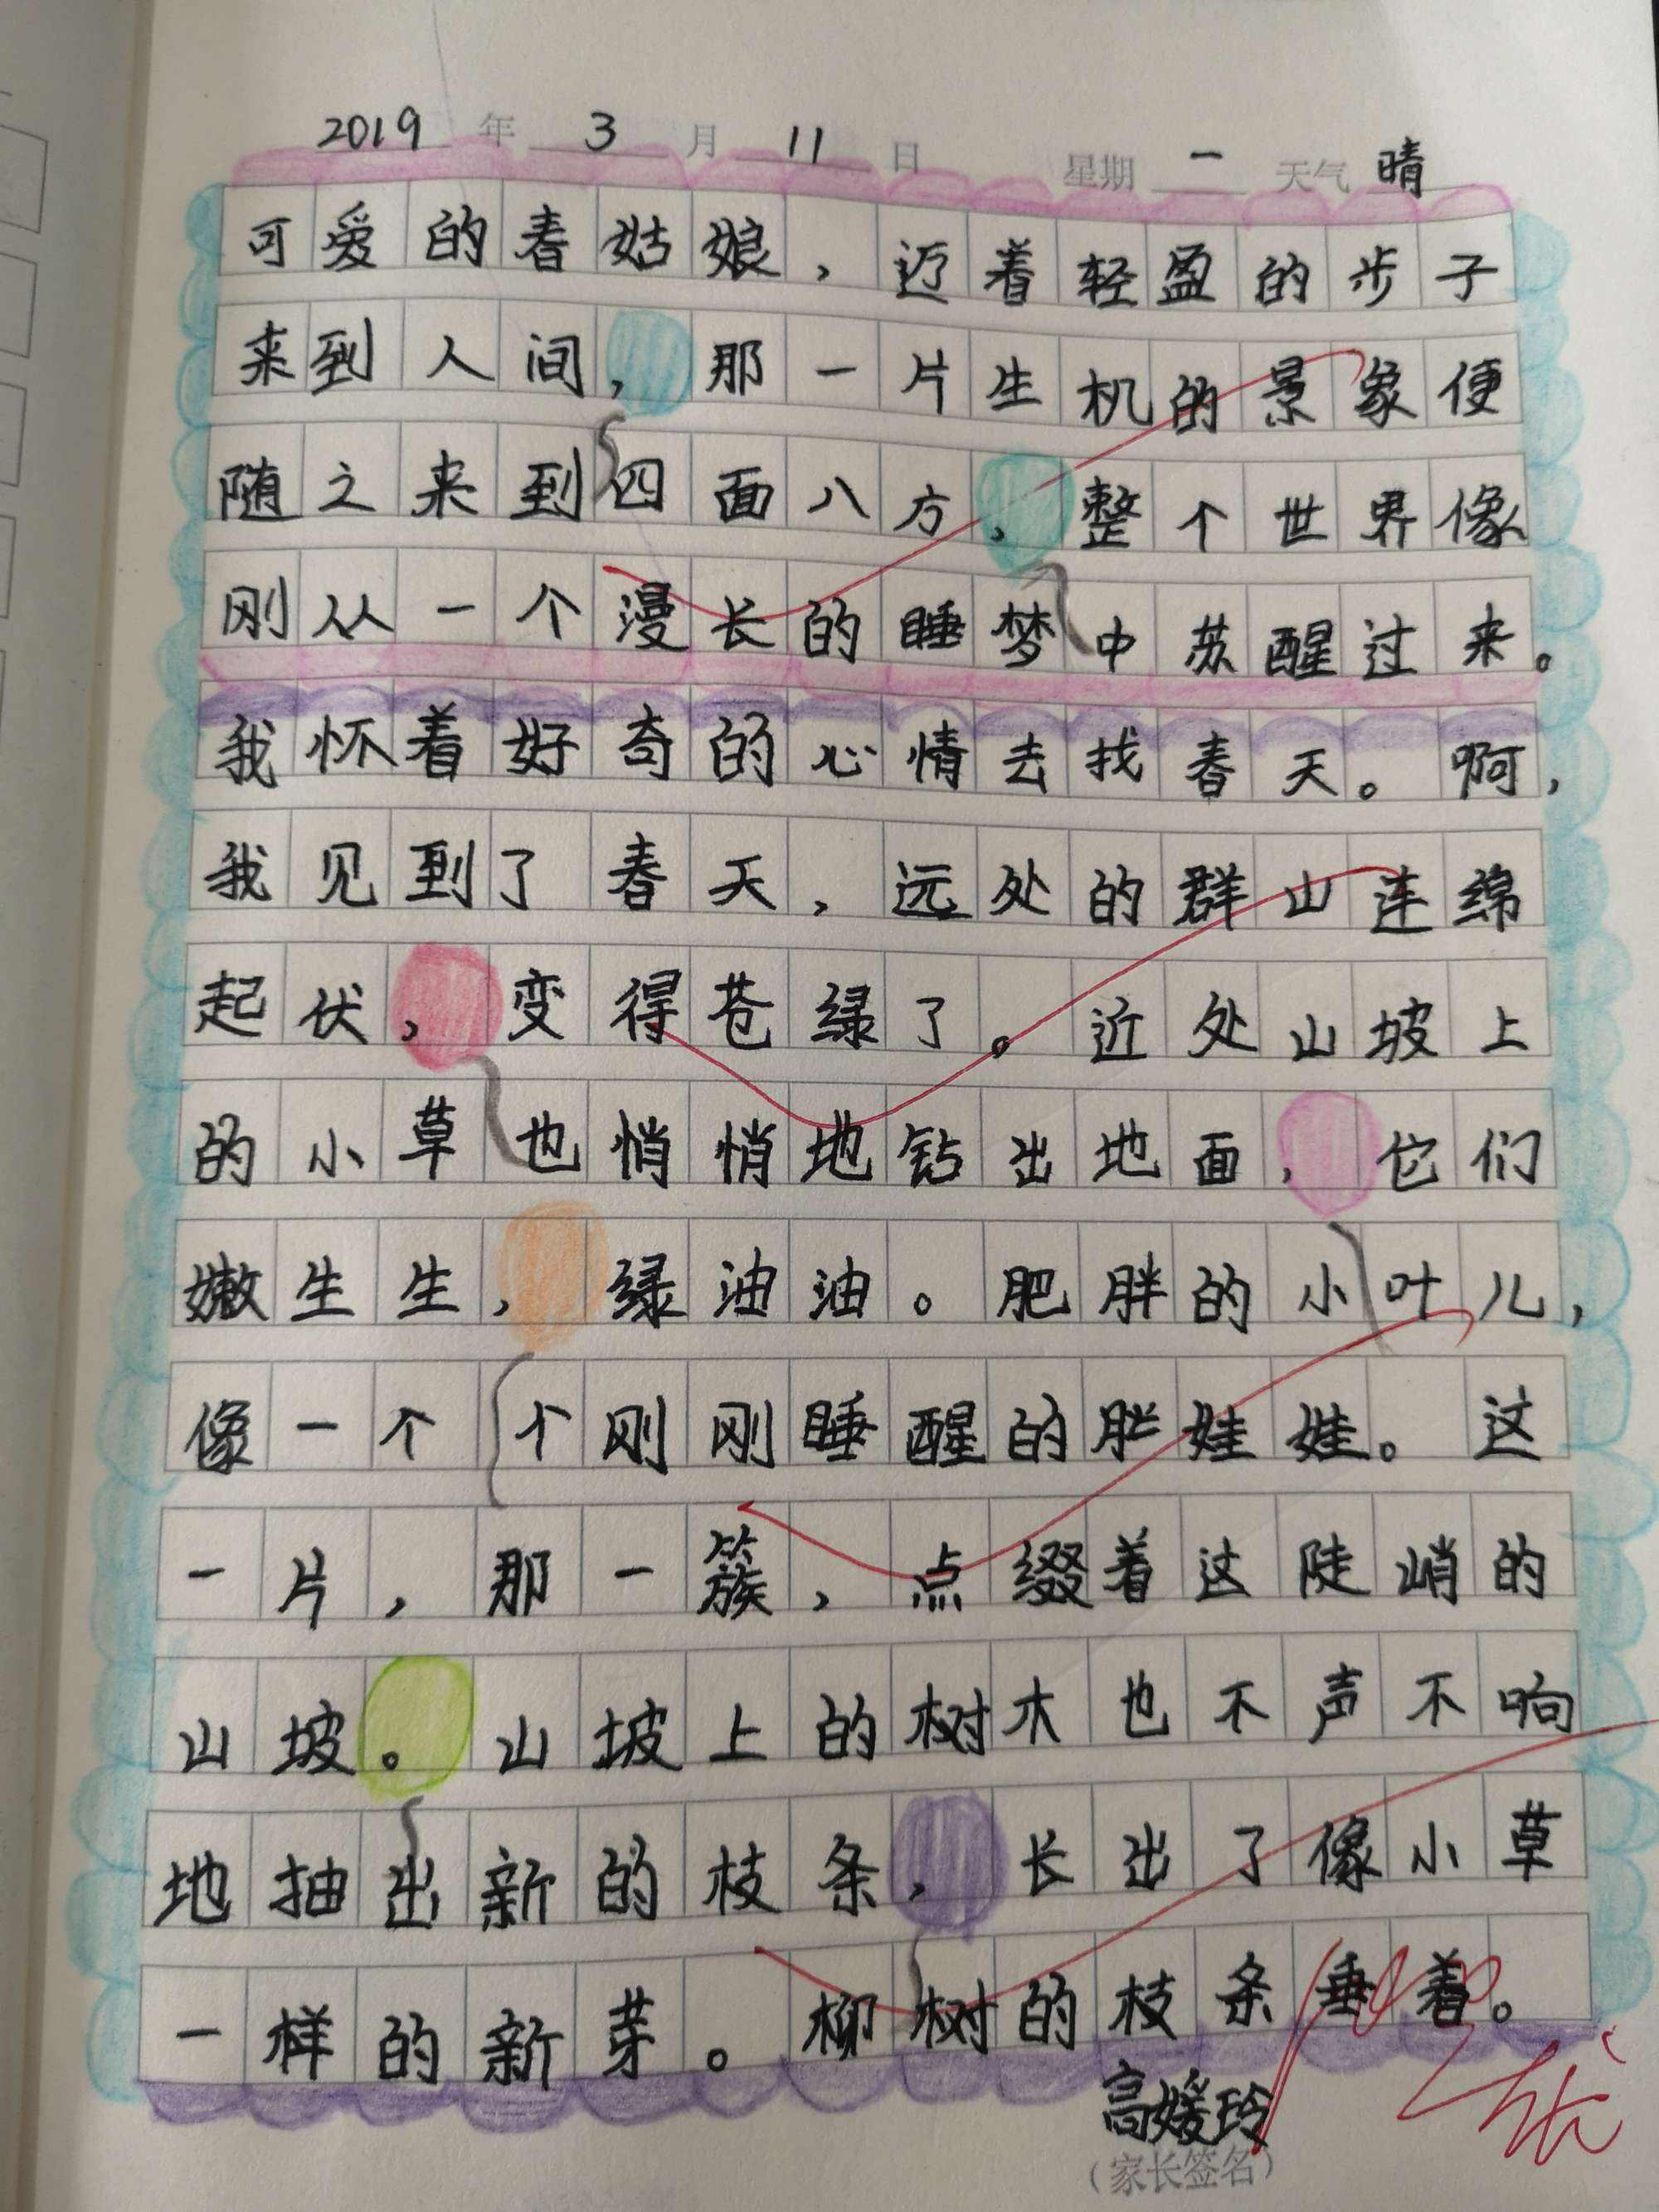 2019年3月11日 星期一 天气晴
可爱的春姑娘，迈着轻盈的步子
来到人间，那一片生机的景象便
随之来到四面八方，整个世界像
刚从一个漫长的睡梦中苏醒过来。
我怀着好奇的心情去找春天。啊，
我见到了春天，远处的群山连绵
起伏，变得苍绿了。近处山坡上
的小草也悄悄地钻出地面，它们
嫩生生，绿油油。肥胖的小叶儿，
像一个个刚刚睡醒的胖娃娃。这
一片，那一簇，点缀着这陡峭的
山坡。山坡上的树木也不声不响
地抽出新的枝条，长出了像小草
一样的新芽。柳树的枝条垂着。
高媛玲
（家长签名）
优